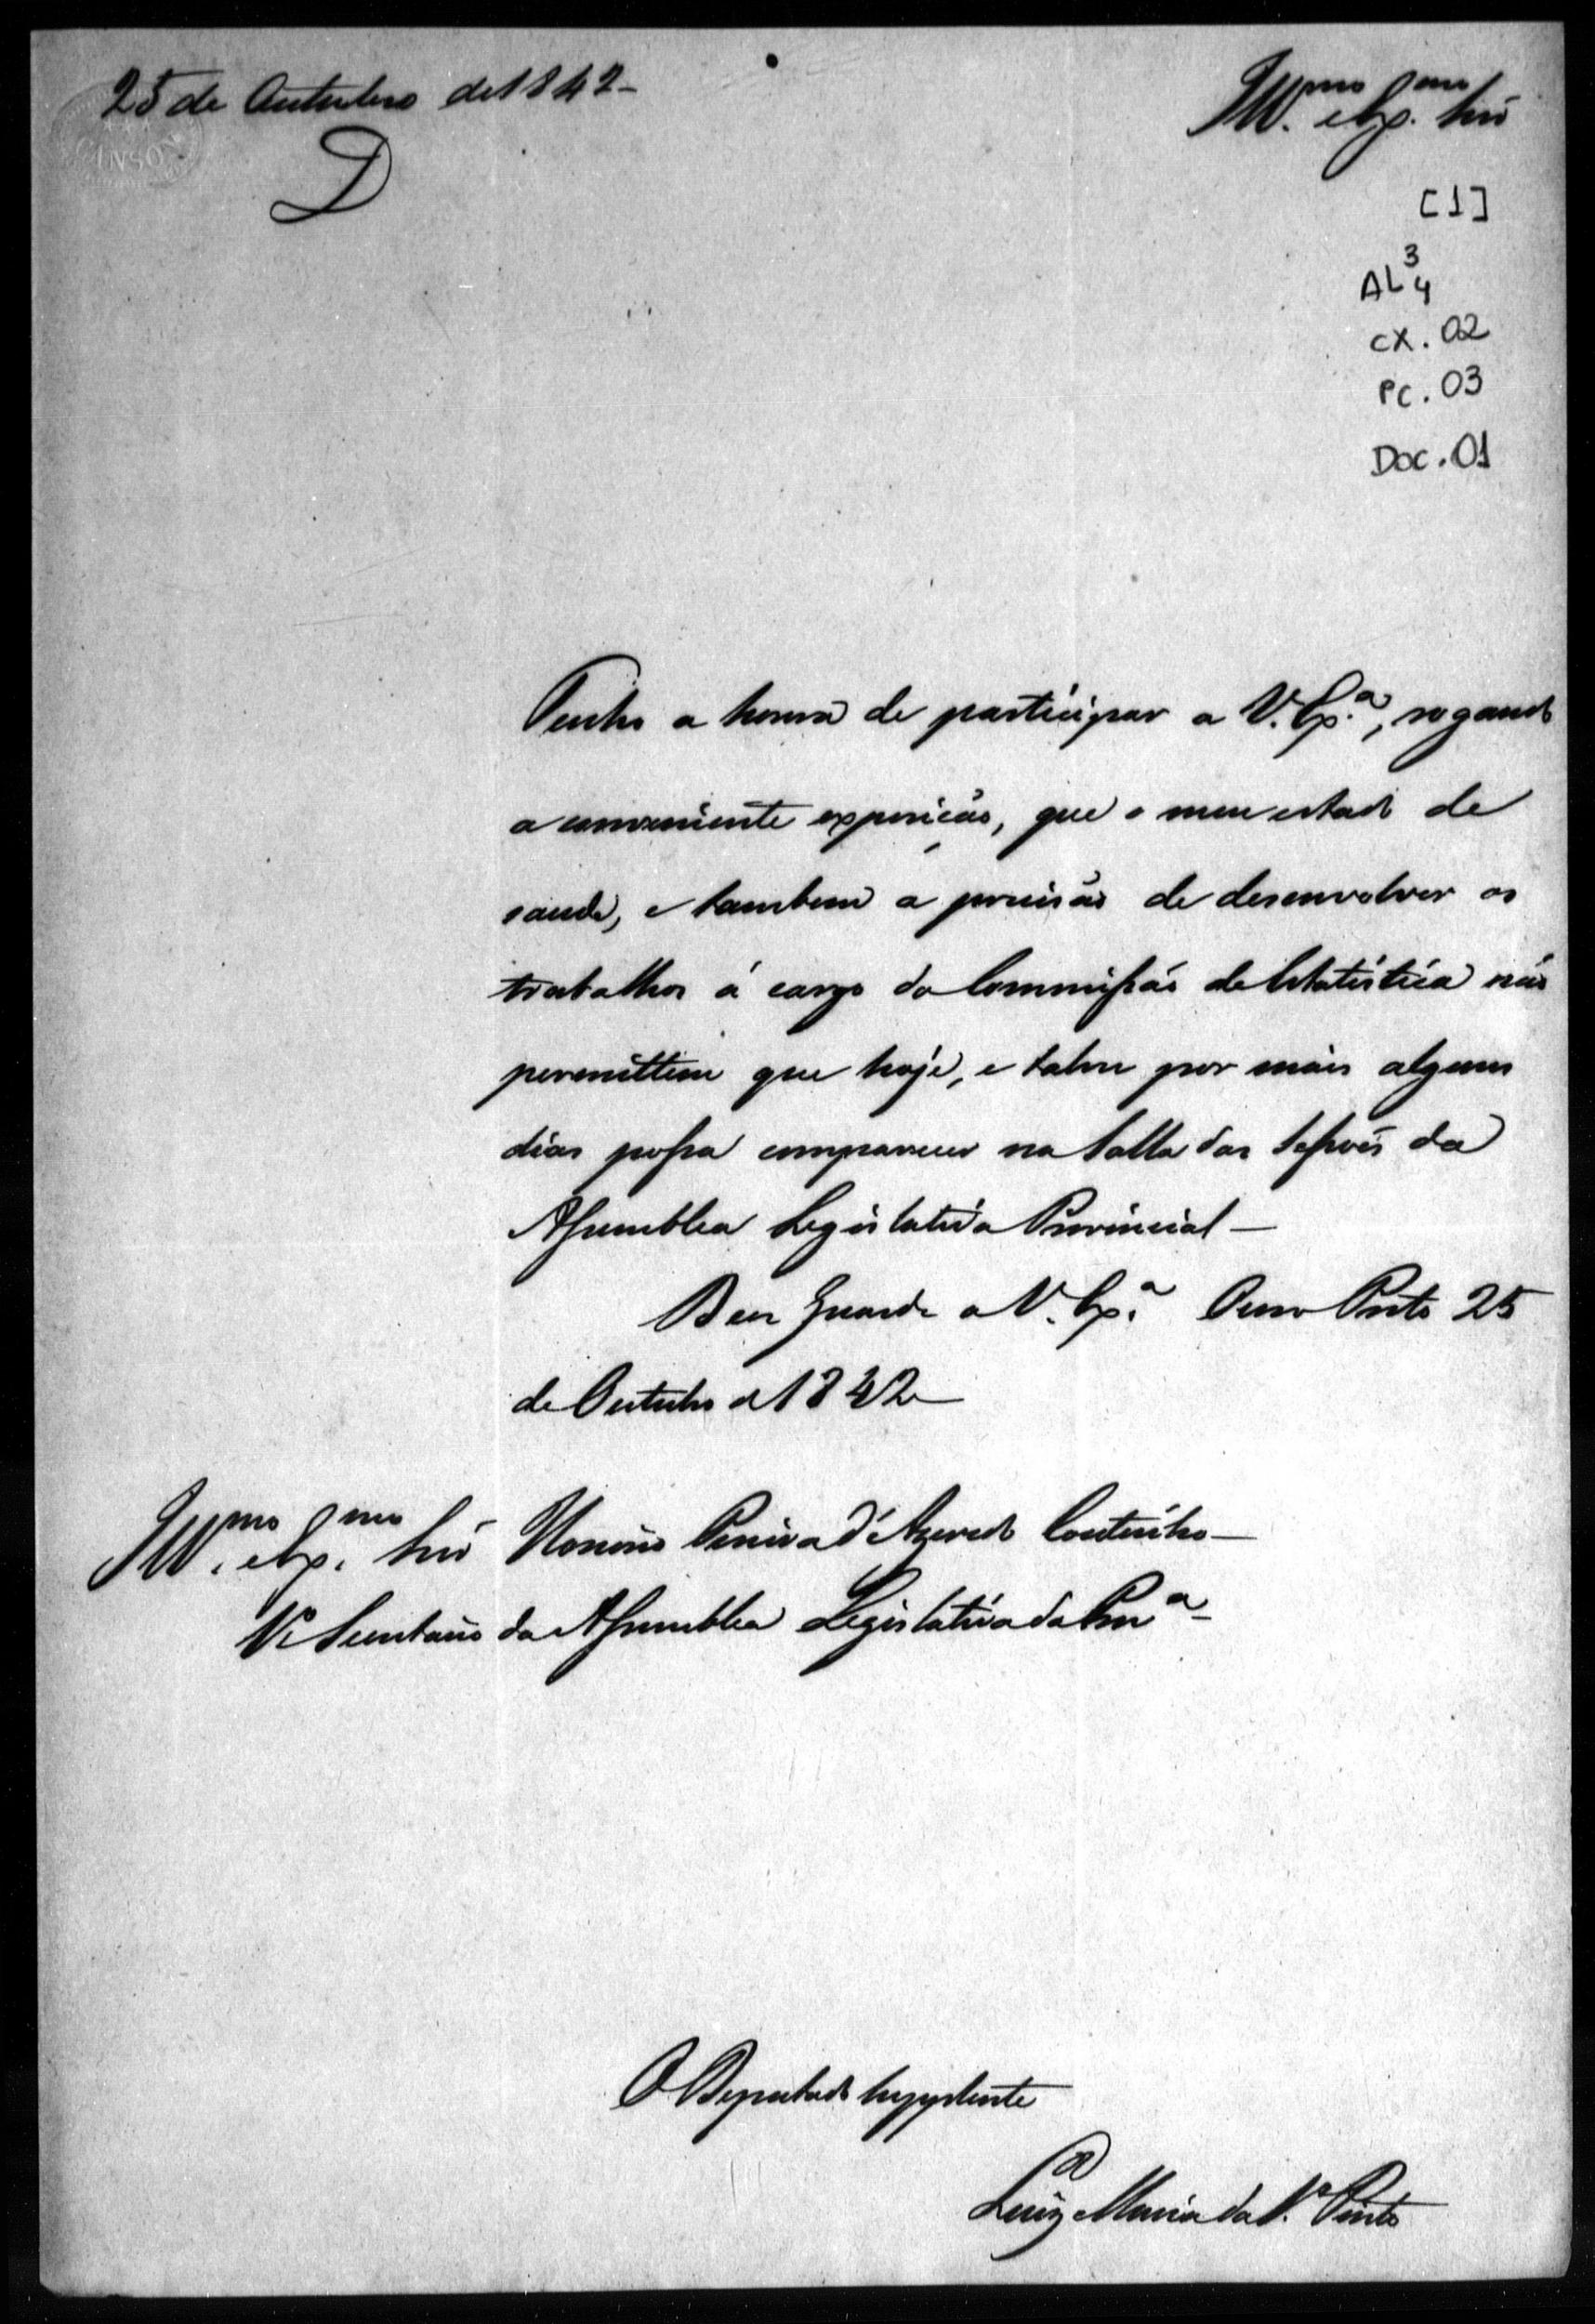 25 de Outubro de 1842-
Ill.mo e Ex.mo Snr̃
D
[1]
AL 3 4
cx. 02
Pc. 03
Doc. 01
Tenho a honra de participar a V. Ex.ª, rogando
a conveniente exposição, que o meu estado de
saude, e tambem a precisão de desenvolver os
trabalhos á cargo da Commissão de Estatistica não
permittem que hoje, e talvez por mais alguns
dias possa comparecer na Salla das Sessões da
Assemblea Legislativa Provincial—
Deos Guarde a V. Ex.ª Ouro Preto 25
de Outubro de 1842—
Ill.mo e Ex.mo Snr̃ Honorio Pereira d'Azeredo Coutinho—
Secretario da Assemblea Legislativa da Prov.ª-
O Deputado Supplente
Luiz Maria da S.ª Pinto